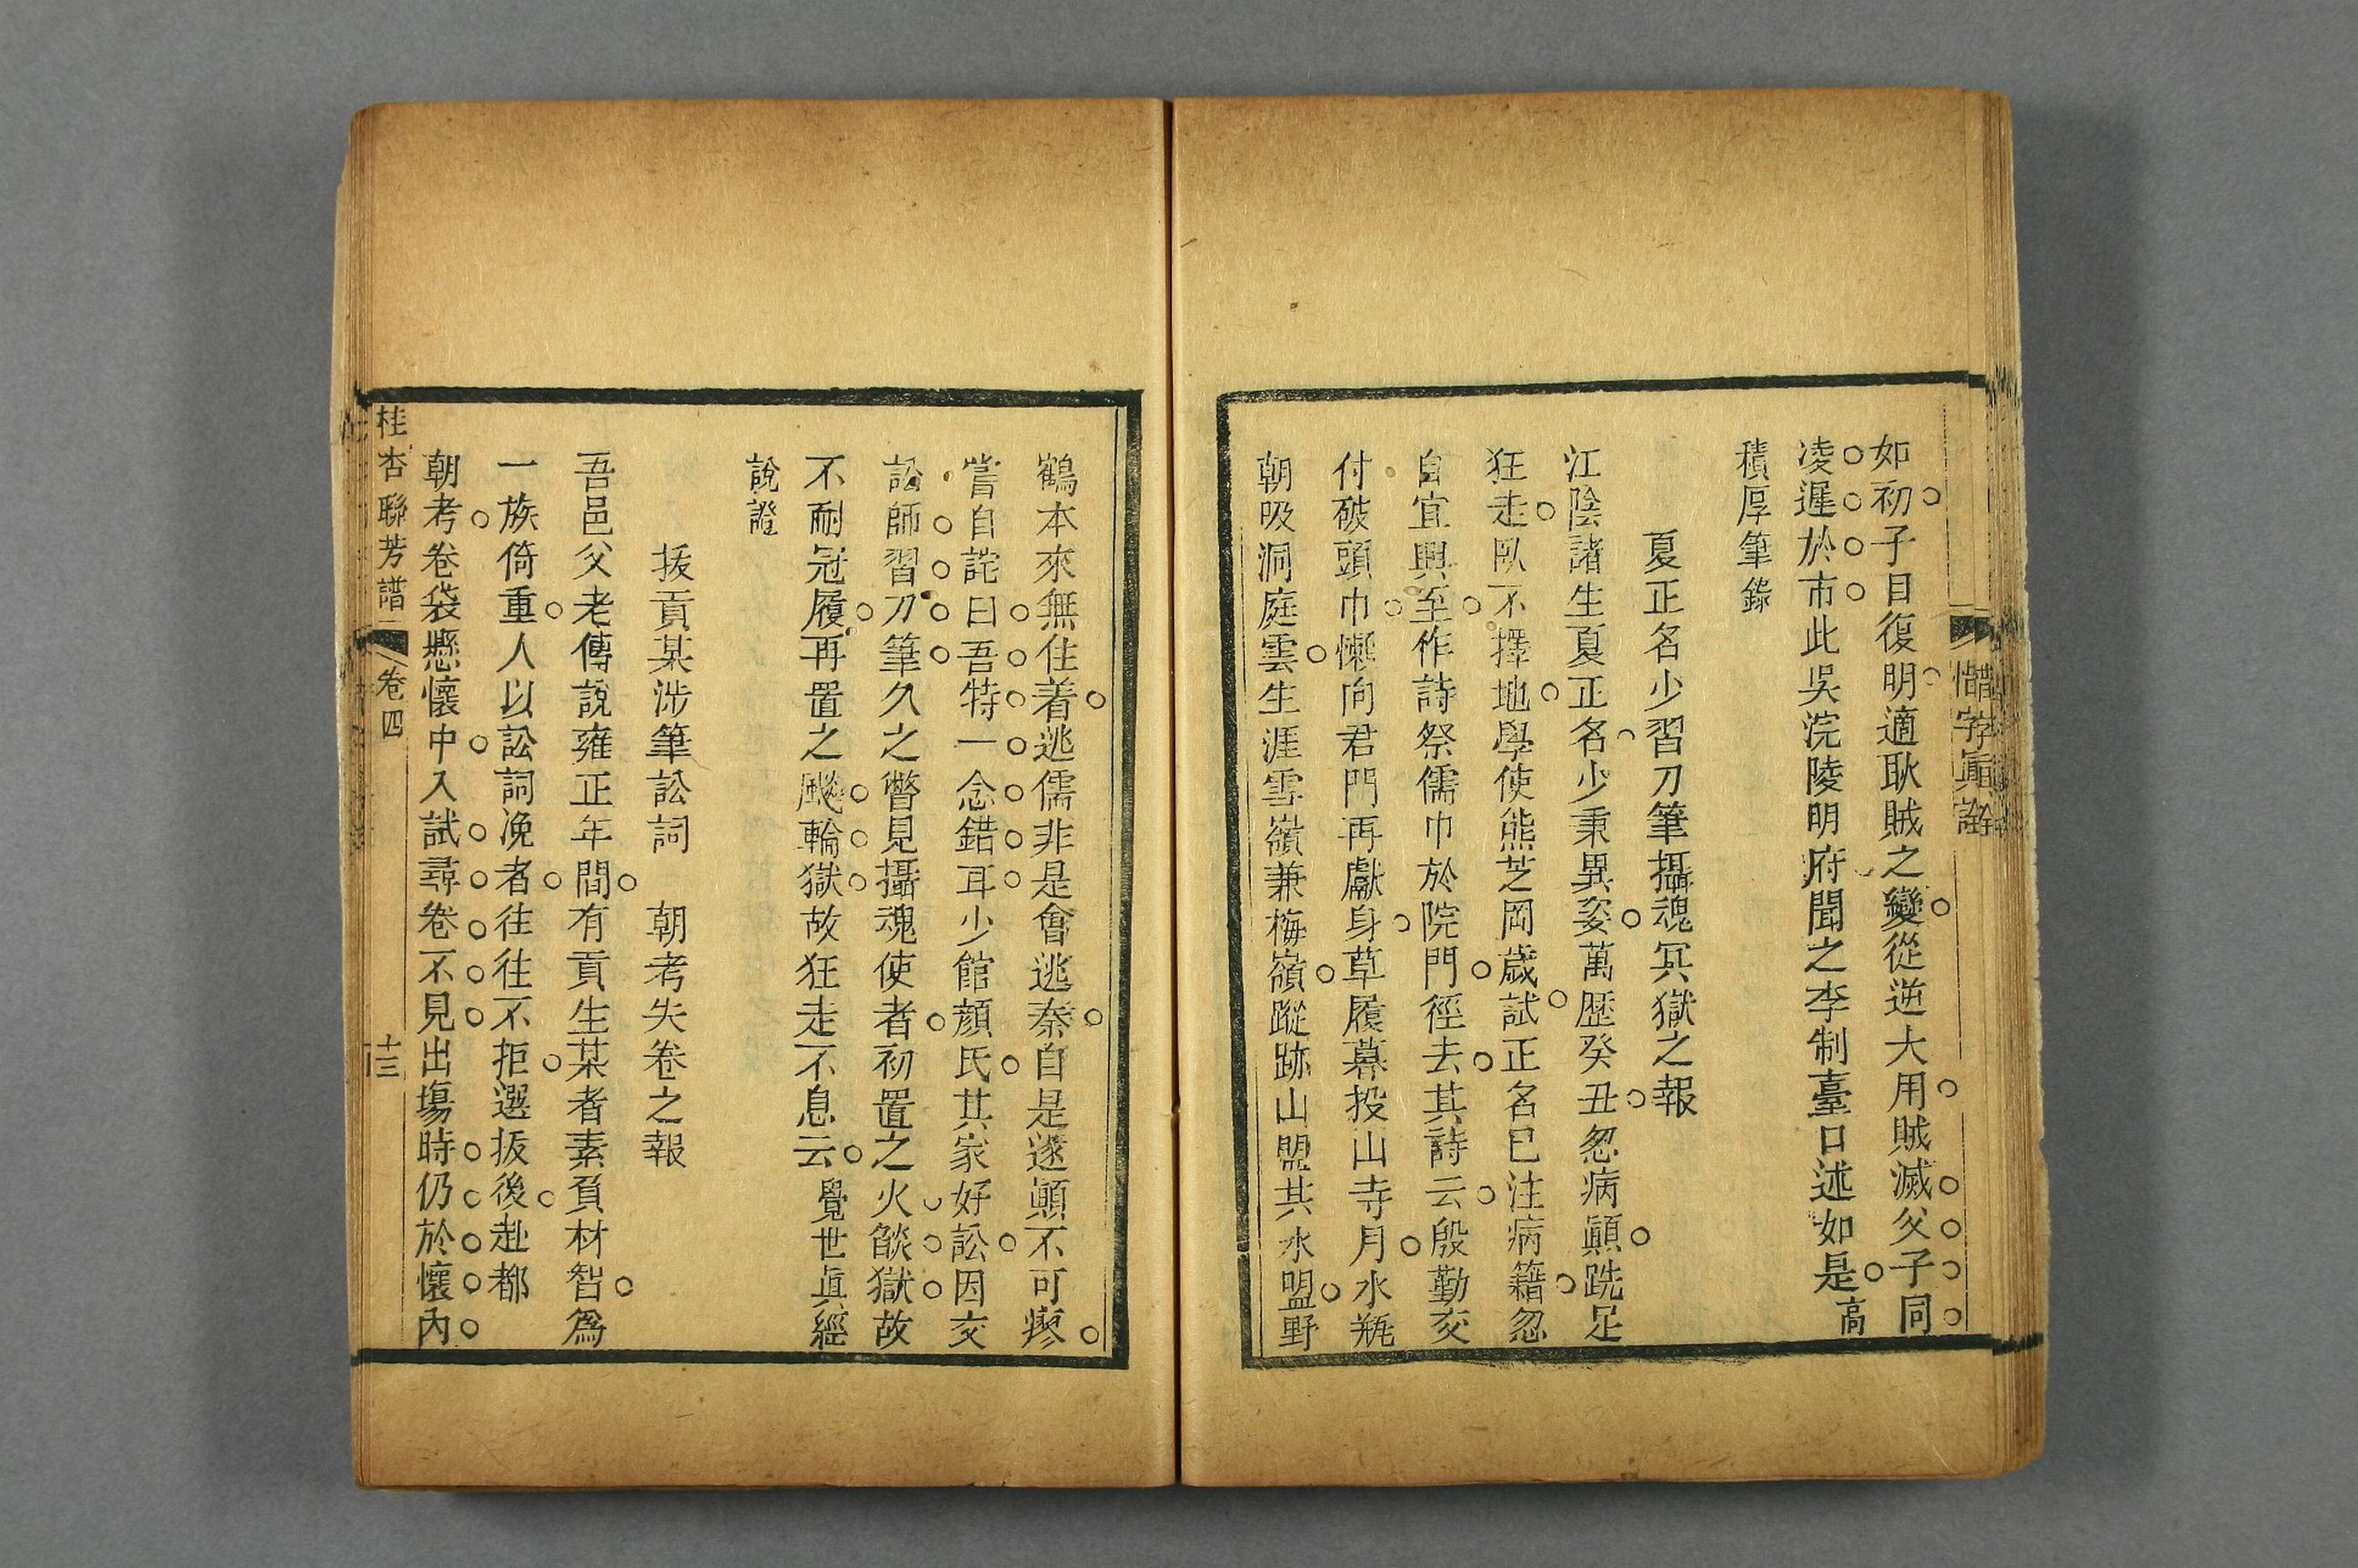 惜字眞詮
如初子目復明適耿賊之變從逆大用賊滅父子同
凌遲於市此吳浣陵明府聞之李制臺口述如是高
積厚筆錄
夏正名少習刀筆攝魂冥獄之報
江陰諸生夏正名少秉異姿萬歷癸丑忽病顚跣足
狂走臥不擇地學使熊芝岡歲試正名已注病籍忽
自宜興至作詩祭儒巾於院門徑去其詩云殷勤交
付破頭巾懶向君門再獻身草履暮投山寺月水瓶
朝吸洞庭雲生涯雪嶺兼梅嶺蹤跡山盟共水盟野
鶴本來無住着逃儒非是會逃秦自是遂顚不可瘳
嘗自詫曰吾特一念錯耳少館顏氏其家好訟因交
訟師習刀筆久之瞥見攝魂使者初置之火燄獄故
不耐冠履再置之颷輪獄故狂走不息云覺世眞經
說證
拔貢某涉筆訟詞　朝考失卷之報
吾邑父老傳說雍正年間有貢生某者素負材智爲
一族倚重人以訟詞浼者往往不拒選拔後赴都
朝考卷袋懸懷中入試尋卷不見出塲時仍於懷內
桂杏聯芳譜
卷四
十三